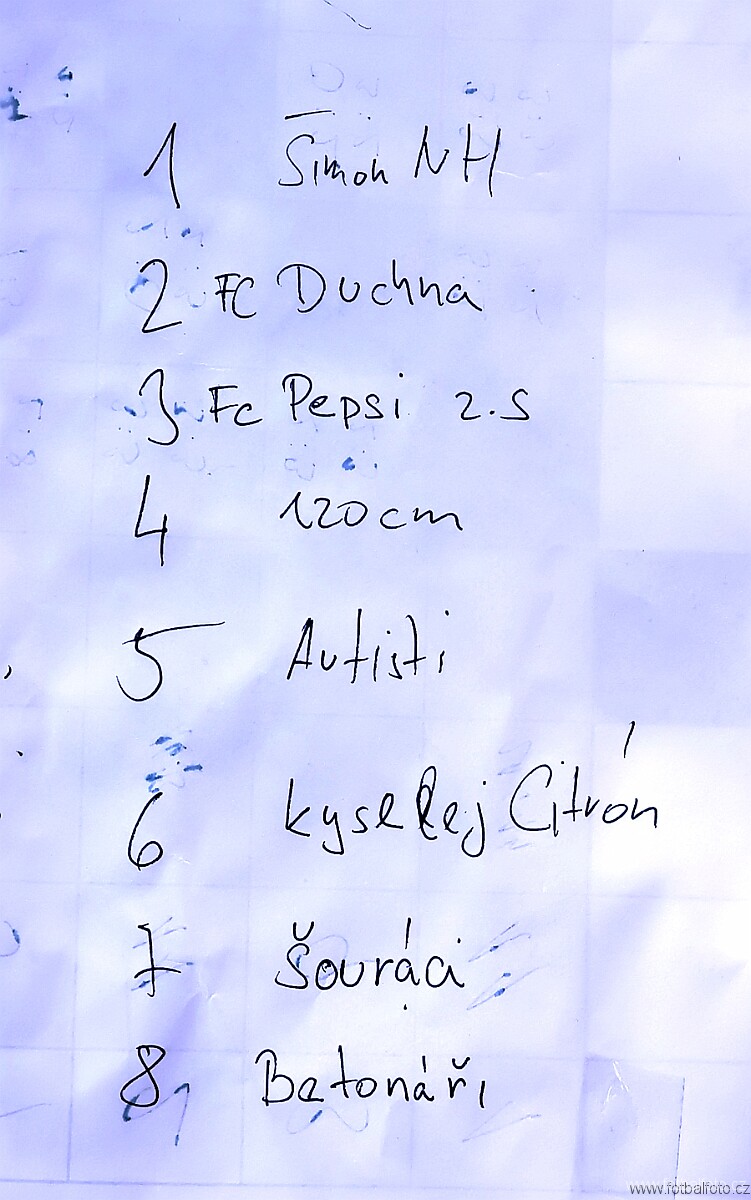 1 Šimon NH
2 FC Duchna
3 Fc Pepsi 2.S
4 120cm
5 Autisti
6 kyselej Citrón
7 Šouráci
8 Betonáři
www.fotbalfoto.cz